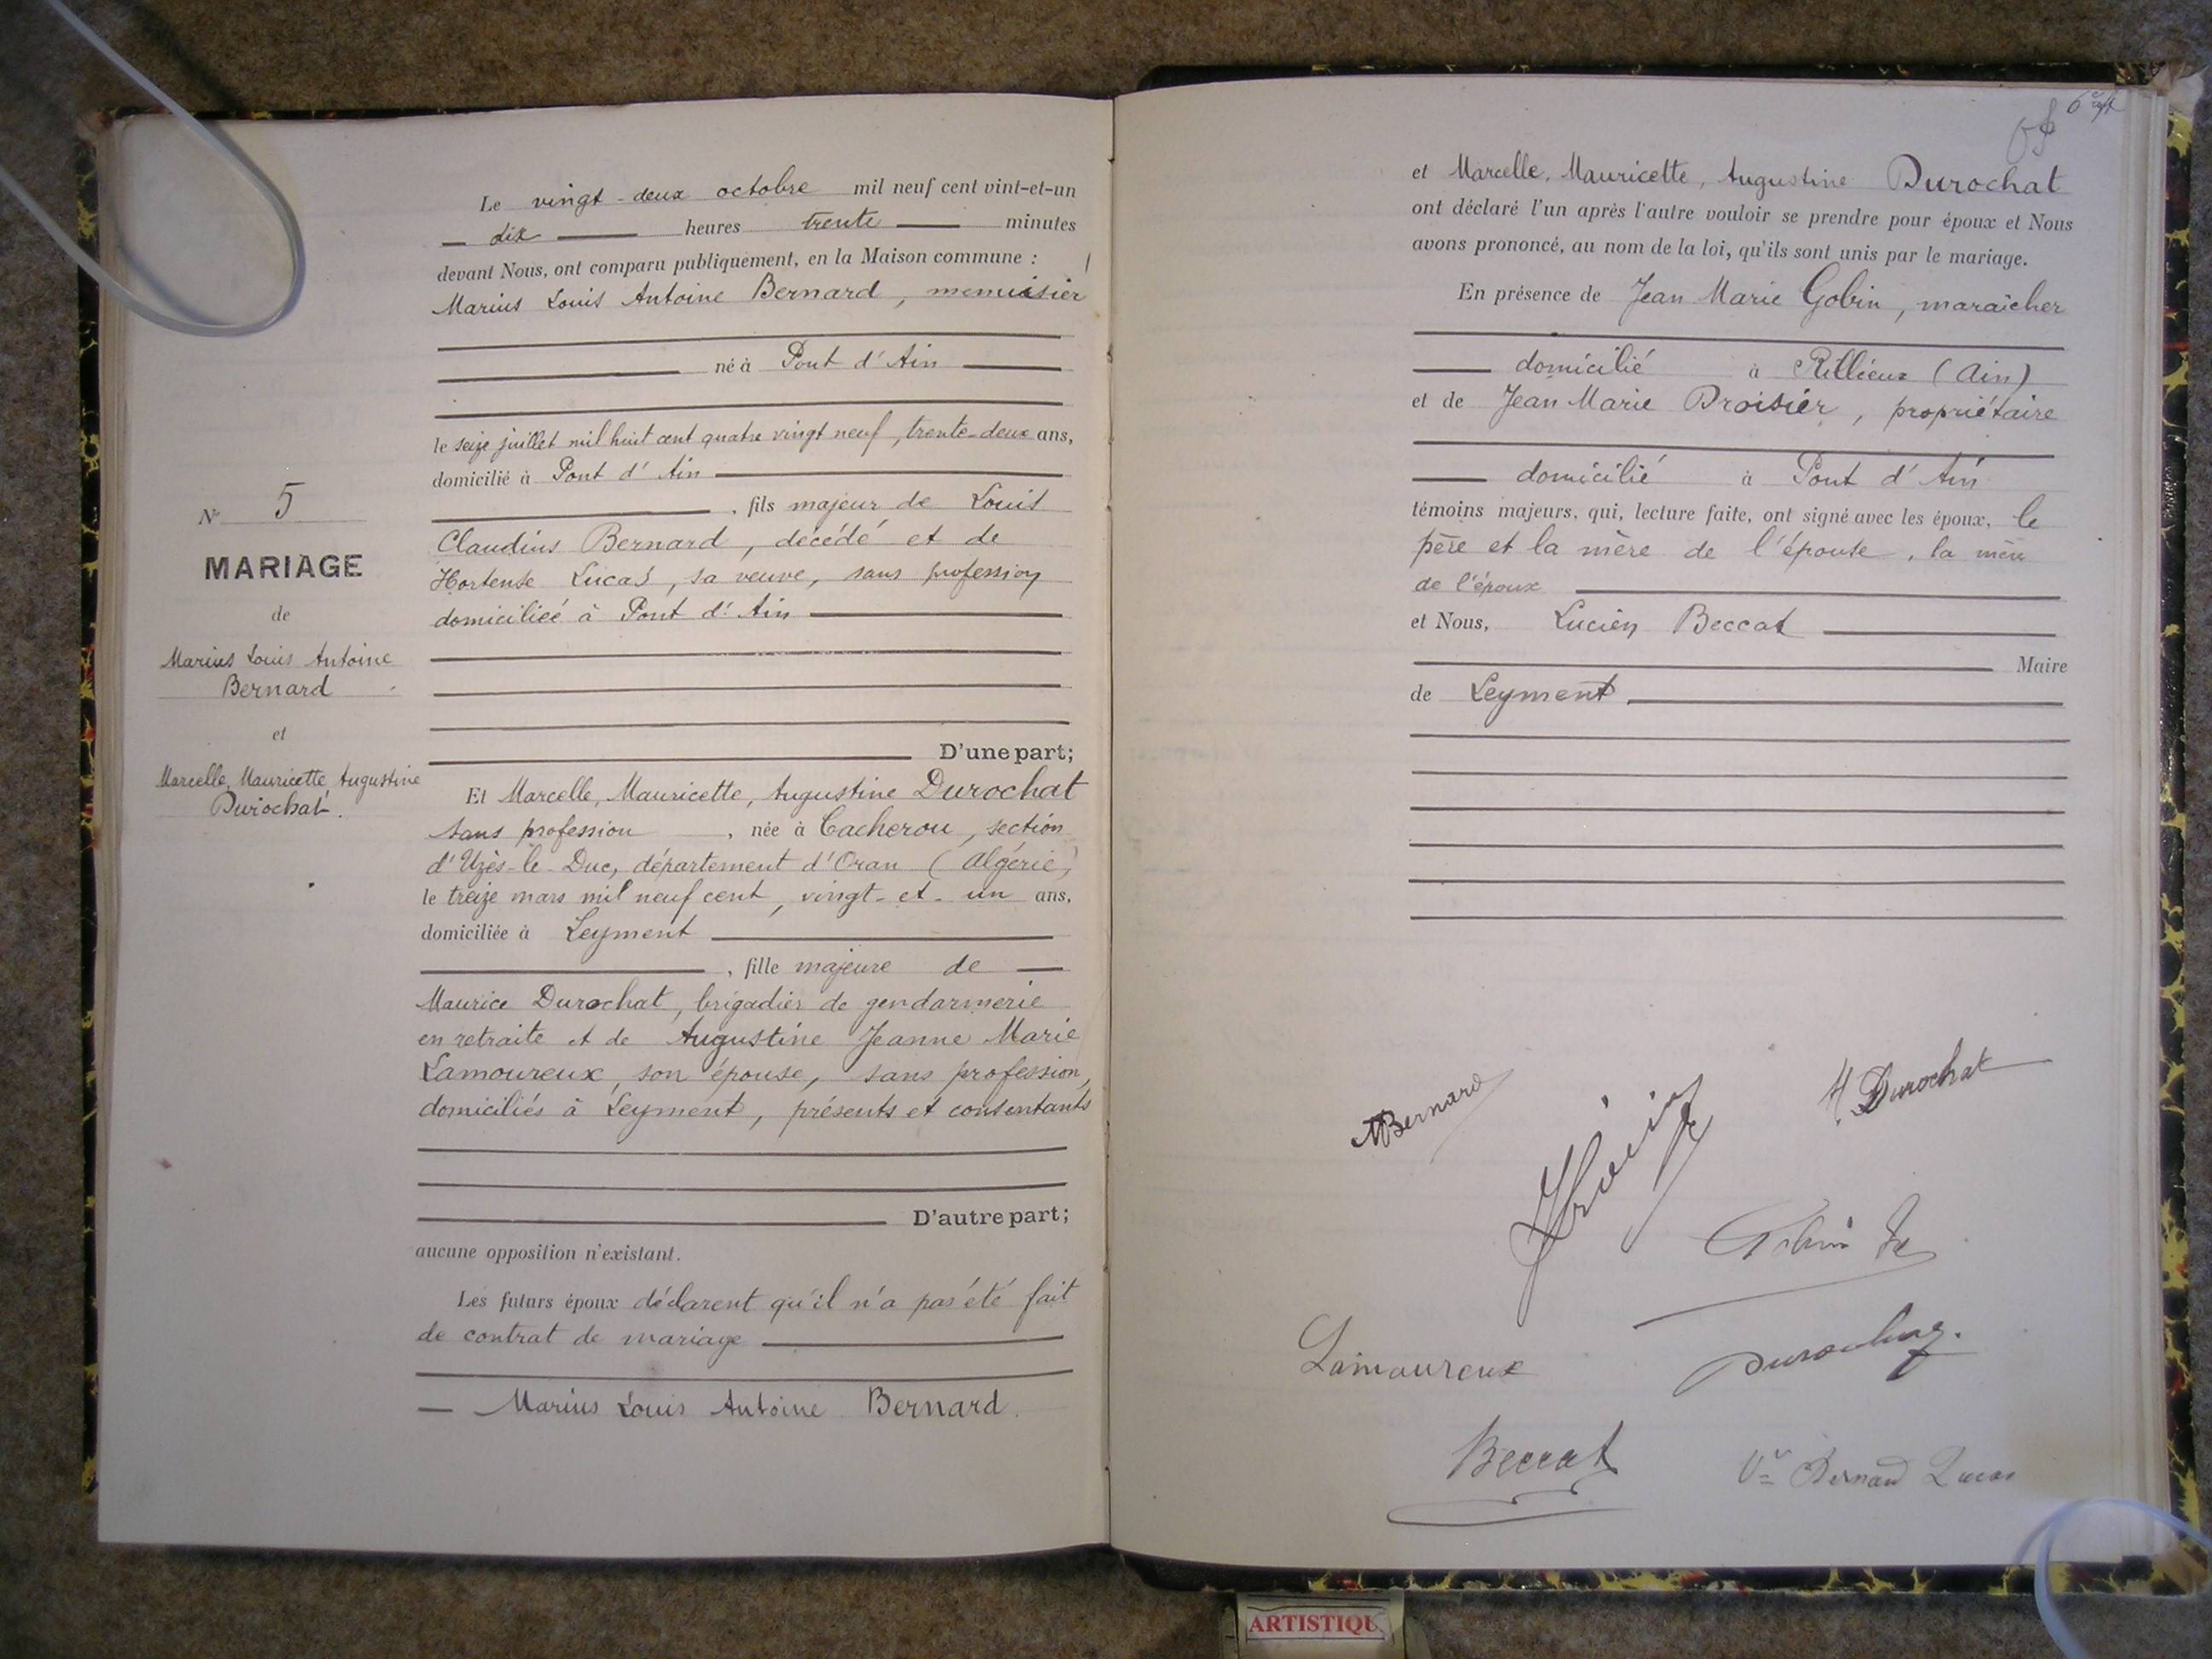 Le vingt-deux octobre mil neuf cent vint-et-un
dix heures trente minutes
devant Nous, ont comparu publiquement, en la Maison commune :
Marius Louis Antoine Bernard, menuisier
né à Pont d'Ain
le seize juillet mil huit cent quatre vingt neuf, trente-deux ans,
domicilié à Pont d'Ain
, fils majeur de Louis
Claudius Bernard, décédé et de
Hortense Lucas, sa veuve, sans profession
domiciliée à Pont d'Ain
D'une part;
Et Marcelle, Mauricette, Augustine Durochat
sans profession, née à Cacherou, section
d'Uzès-le-Duc, département d'Oran (Algérie)
le treize mars mil neuf cent, vingt-et-un ans,
domiciliée à Leyment
, fille majeure de
Maurice Durochat, brigadier de gendarmerie
en retraite et de Augustine Jeanne Marie
Lamoureux, son épouse, sans profession,
domiciliés à Leyment, présents et consentants
D'autre part;
aucune opposition n'existant.
Les futurs époux déclarent qu'il n'a pas été fait
de contrat de mariage
Marius Louis Antoine Bernard.
No 5
MARIAGE
de
Marius Louis Antoine
Bernard
et
Marcelle, Mauricette, Augustine
Durochat.
et Marcelle, Mauricette, Augustine Durochat
ont déclaré l'un après l'autre vouloir se prendre pour époux et Nous
avons prononcé, au nom de la loi, qu'ils sont unis par le mariage.
En présence de Jean Marie Gobin, maraîcher
domicilié à Rillieux (Ain)
et de Jean Marie Proisier, propriétaire
domicilié à Pont d'Ain
témoins majeurs, qui, lecture faite, ont signé avec les époux, le
père et la mère de l'épouse, la mère
de l'époux
et Nous, Lucien Beccat
Maire
de Leyment
MBernard
Durochat
Gobin
Lamoureux
Durochat
Beccat
Vve Bernard Lucas
ARTISTIQU